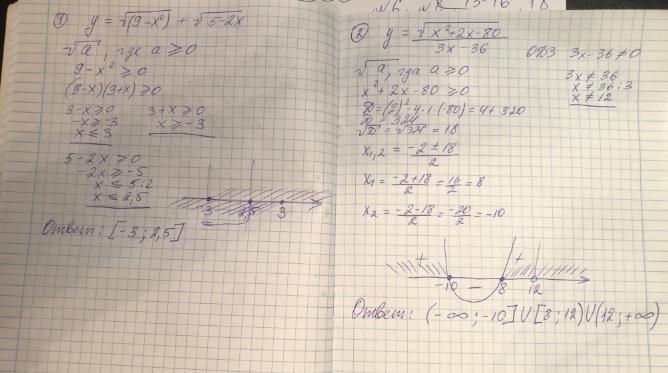 ① y = √(9-x²) + √5-2x
√a, где a ≥ 0
9-x² ≥ 0
(3-x)(3+x) ≥ 0
3-x ≥ 0 3+x ≥ 0
-x ≥ -3 x ≥ -3
x ≤ 3
5-2x ≥ 0
-2x ≥ -5
x ≤ 5:2
x ≤ 2,5
-3 2,5 3
Ответ: [-3; 2,5]
② y = √x²+2x-80 / 3x-36 ОДЗ 3x-36 ≠ 0
√a, где a ≥ 0 3x ≠ 36
x²+2x-80 ≥ 0 x ≠ 36:3
x ≠ 12
D = (2)²-4·1·(-80) = 4+320
D = 324
√D = √324 = 18
x1,2 = -2±18 / 2
x1 = -2+18 / 2 = 16 / 2 = 8
x2 = -2-18 / 2 = -20 / 2 = -10
+ - +
-10 8 12
Ответ: (-∞; -10] U [8; 12) U (12; +∞)